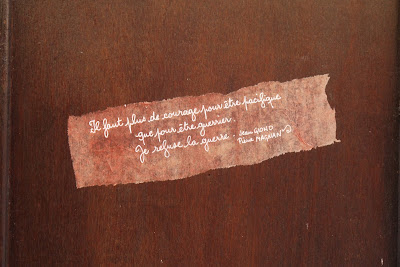 Il faut plus de courage pour être pacifique
que pour être guerrier.
Je refuse la guerre. Jean GIONO